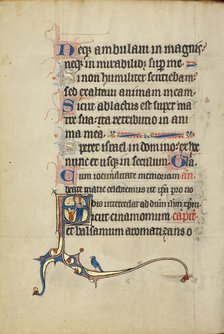 Neq; ambulavi in magnis
neq; in mirabilib; super me
Si non humiliter sentiebam
sed exaltavi animam meam
Sicut ablactatus est super ma
tre sua ita retributio in ani
ma mea
Speret israel in domino ex hoc
nunc et usq; in seculum Gla
Cum iocunditate memoriam
marie celebremus ut ipsa pro no
bis intercedat ad dominum
Sicut cinamomum capit
et balsamum aromatizans o